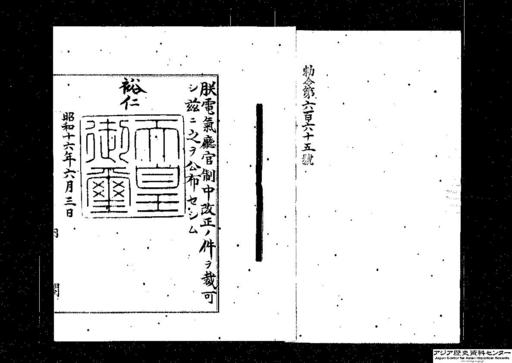 勅令第六百六十五號
朕電氣廳官制中改正ノ件ヲ裁可
シ茲ニ之ヲ公布セシム
裕仁
天皇
御璽
昭和十六年六月三日
アジア歴史資料センター
Japan Center for Asian Historical Records